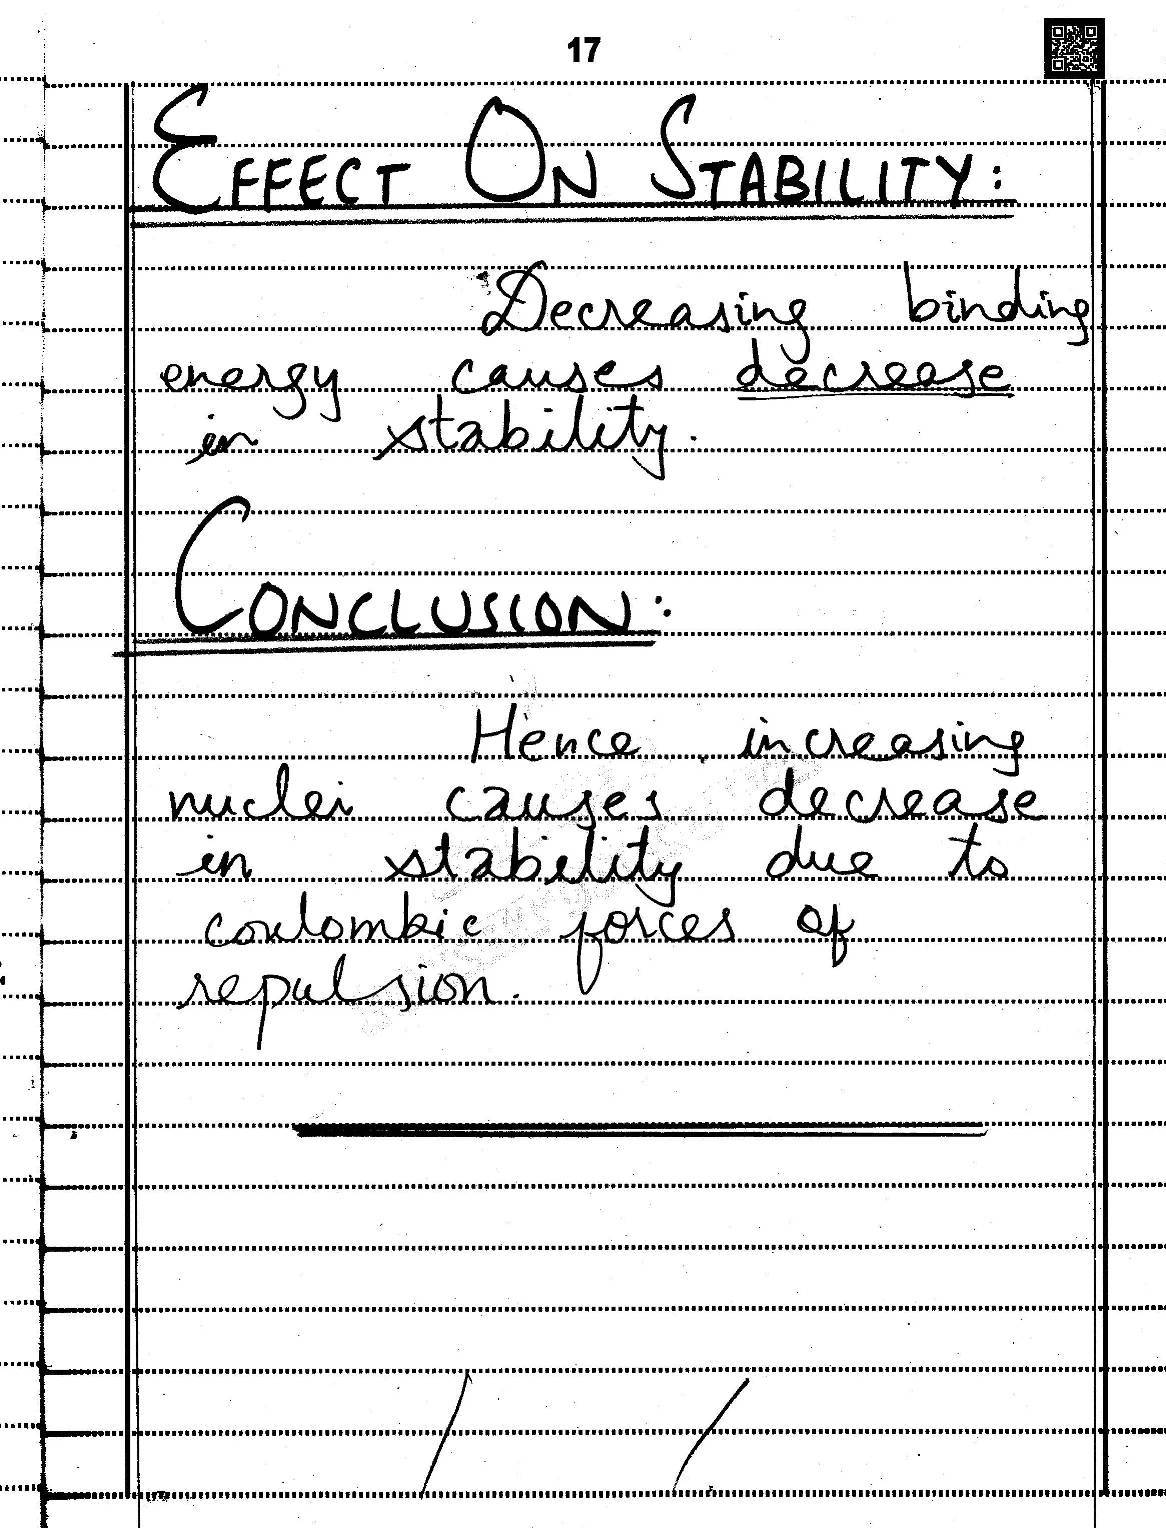 17
EFFECT ON STABILITY:
Decreasing binding
energy causes decrease
in stability.
CONCLUSION:
Hence increasing
nuclei causes decrease
in stability due to
coulombic forces of
repulsion.